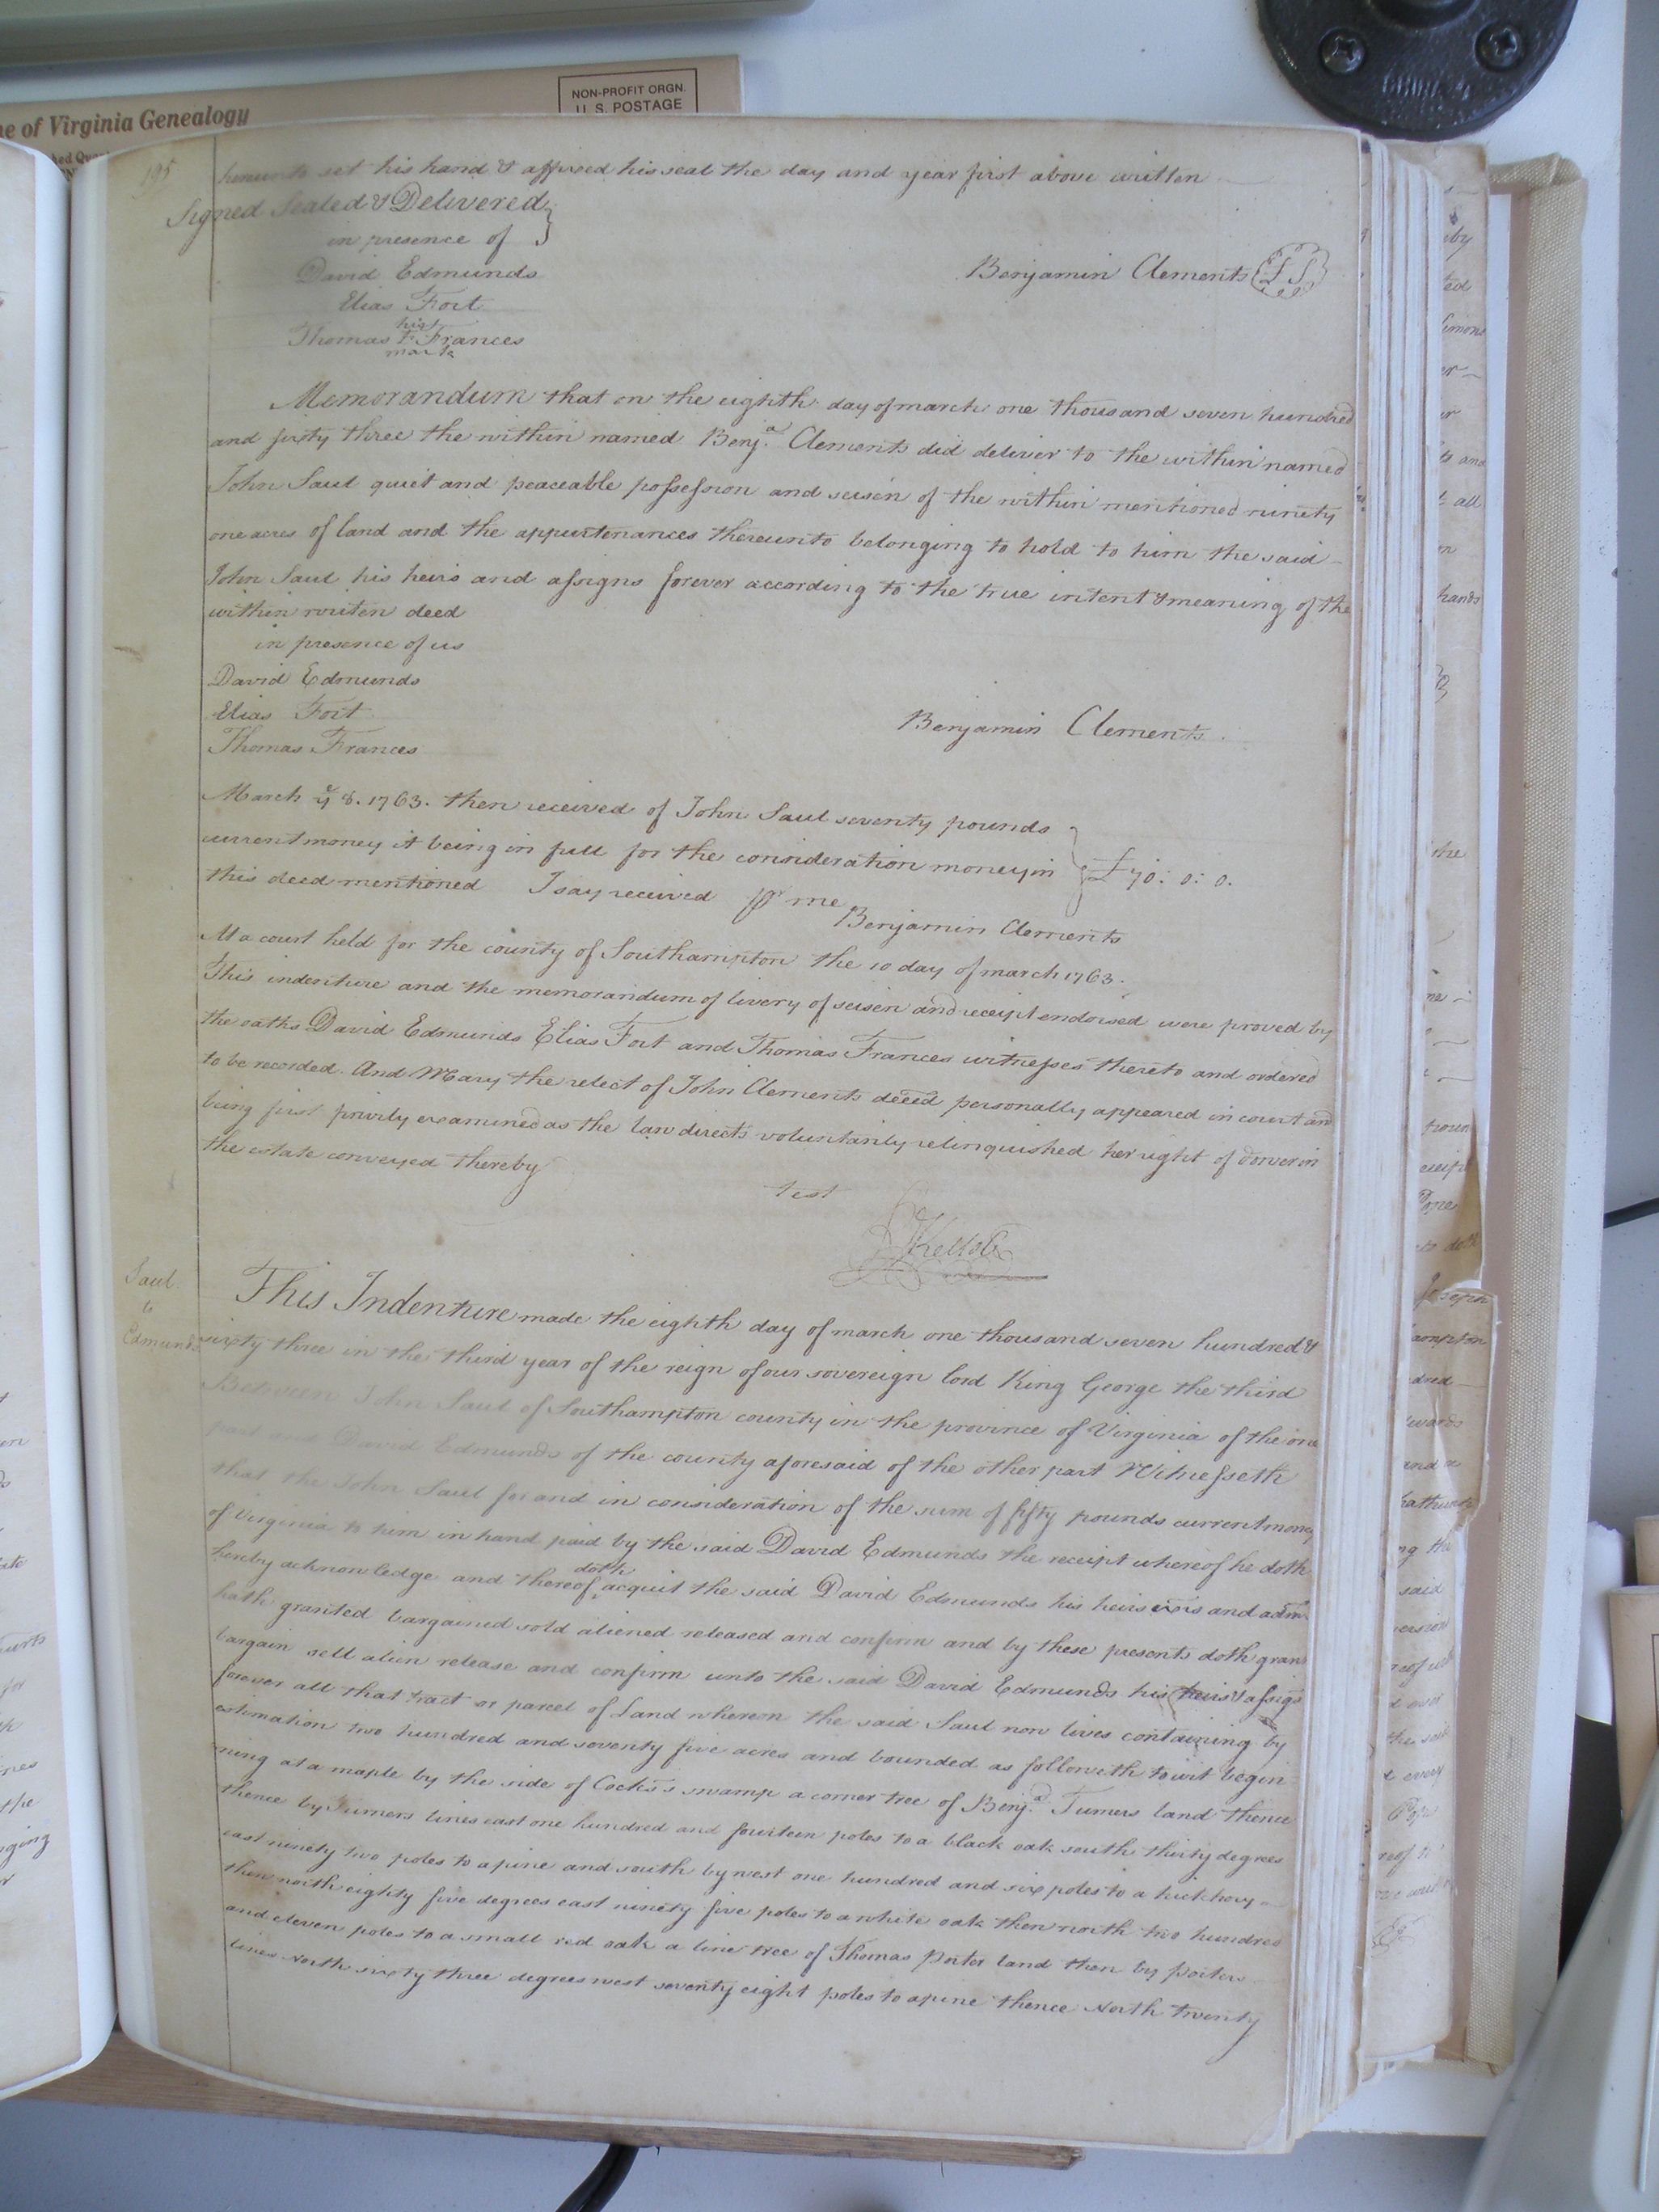 NON-PROFIT ORGN.
U. S. POSTAGE
ne of Virginia Genealogy
195
hereunto set his hand & affixed his seal the day and year first above written
Signed Sealed & Delivered
in presence of
David Edmunds
Benjamin Clements LS
Elias Fort
his
Thomas F Frances
mark
Memorandum that on the eighth day of march one thousand seven hundred
and sixty three the within named Benj.a Clements did deliver to the within named
John Saul quiet and peaceable possession and seisen of the within mentioned ninety
one acres of land and the appurtenances thereunto belonging to hold to him the said
John Saul his heirs and assigns forever according to the true intent & meaning of the
within writen deed
in presence of us
David Edmunds
Elias Fort
Benjamin Clements
Thomas Frances
March ye 8. 1763. then received of John Saul seventy pounds
current money it being in full for the consideration money in
£ 70: 0: 0.
this deed mentioned I say received pr me
Benjamin Clements
At a court held for the county of Southampton the 10 day of march 1763.
This indenture and the memorandum of livery of seisen and receipt endorsed were proved by
the oaths David Edmunds Elias Fort and Thomas Frances witnesses thereto and ordered
to be recorded. And Mary the relect of John Clements deced personally appeared in court and
being first privily examined as the law directs voluntarily relinquished her right of dower in
the estate conveyed thereby
Test
Saul
to
Edmunds
This Indenture made the eighth day of march one thousand seven hundred &
sixty three in the third year of the reign of our sovereign lord King George the third
Between John Saul of Southampton county in the province of Virginia of the one
part and David Edmunds of the county aforesaid of the other part Witnesseth
that the John Saul for and in consideration of the sum of fifty pounds current money
of Virginia to him in hand paid by the said David Edmunds the receipt whereof he doth
hereby acknowledge and thereof doth acquit the said David Edmunds his heirs exrs and adm
hath granted bargained sold aliened released and confirm and by these presents doth grant
bargain sell alien release and confirm unto the said David Edmunds his heirs & assigs
forever all that tract or parcel of Land whereon the said Saul now lives containing by
estimation two hundred and seventy five acres and bounded as followeth towit begin
ning at a maple by the side of Cocks's swamp a corner tree of Benj.a Turners land thence
thence by Turners lines east one hundred and fourteen poles to a black oak south thirty degrees
east ninety two poles to a pine and south by west one hundred and six poles to a hickhory
then north eighty five degrees east ninety five poles to a white oak then north two hundred
and eleven poles to a small red oak a line tree of Thomas Porter land then by Porters
lines North sixty three degrees west seventy eight poles to a pine thence North twenty